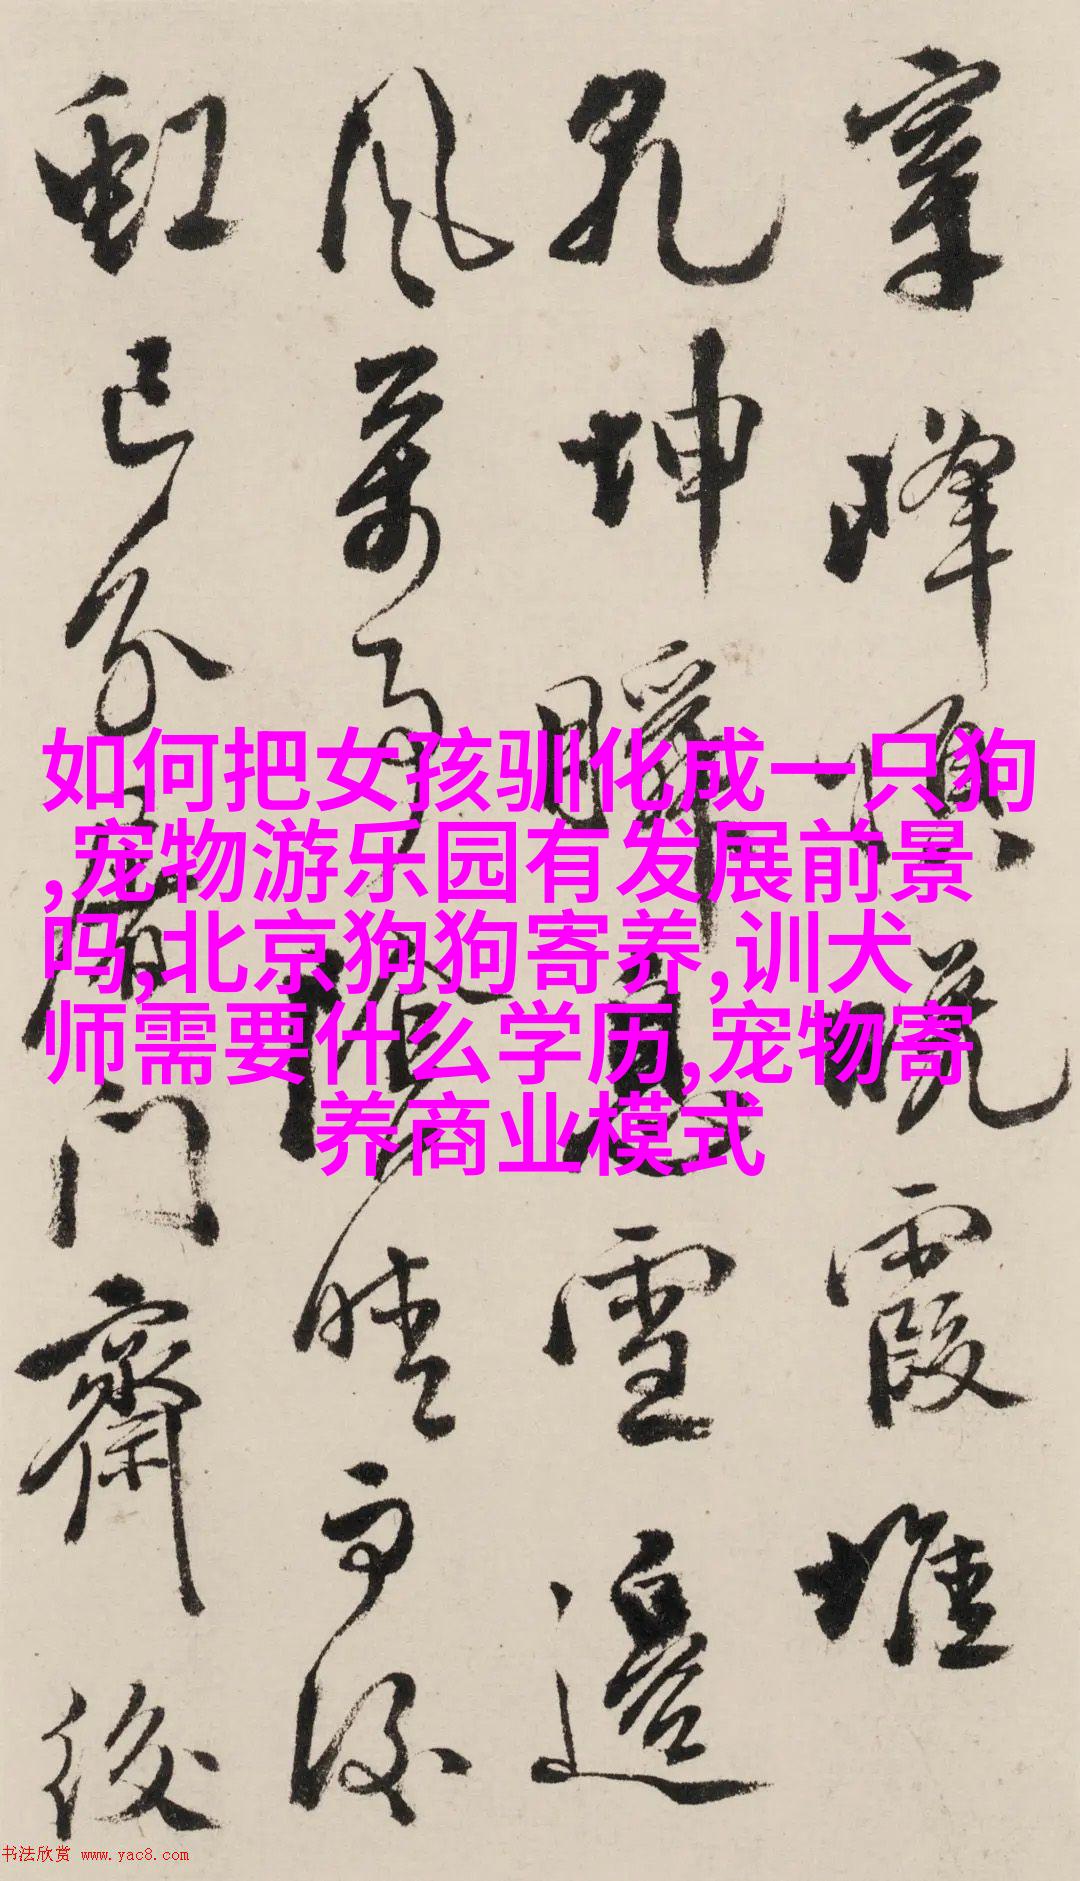 峰 霞 堆
坤 瞬 息 雪 邊
風 萬 事 陰 晴 雨 後
虹 已 分 門 齋 後
如何把女孩驯化成一只狗
,宠物游乐园有发展前景
吗,北京狗狗寄养,训犬
师需要什么学历,宠物寄
养商业模式
书法欣赏 www.yac8.com